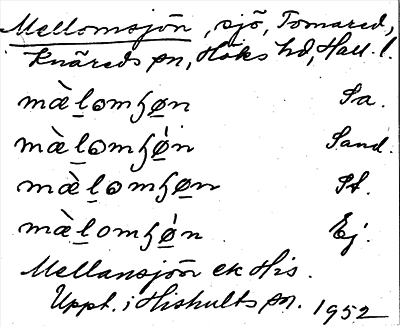 Mellomsjön, sjö, Tomared,
Knäreds sn, Höks hd, Hall. l.
mæ̀l̲ɷmɧø̲n Sa.
mæ̀l̲ɷmɧǿ̲n Sand.
mæ̀l̲ɷmɧø̲n St.
mæ̀l̲omɧǿ̲n Ej.
Mellansjön ek His.
Uppt. i Hishults sn. 1952